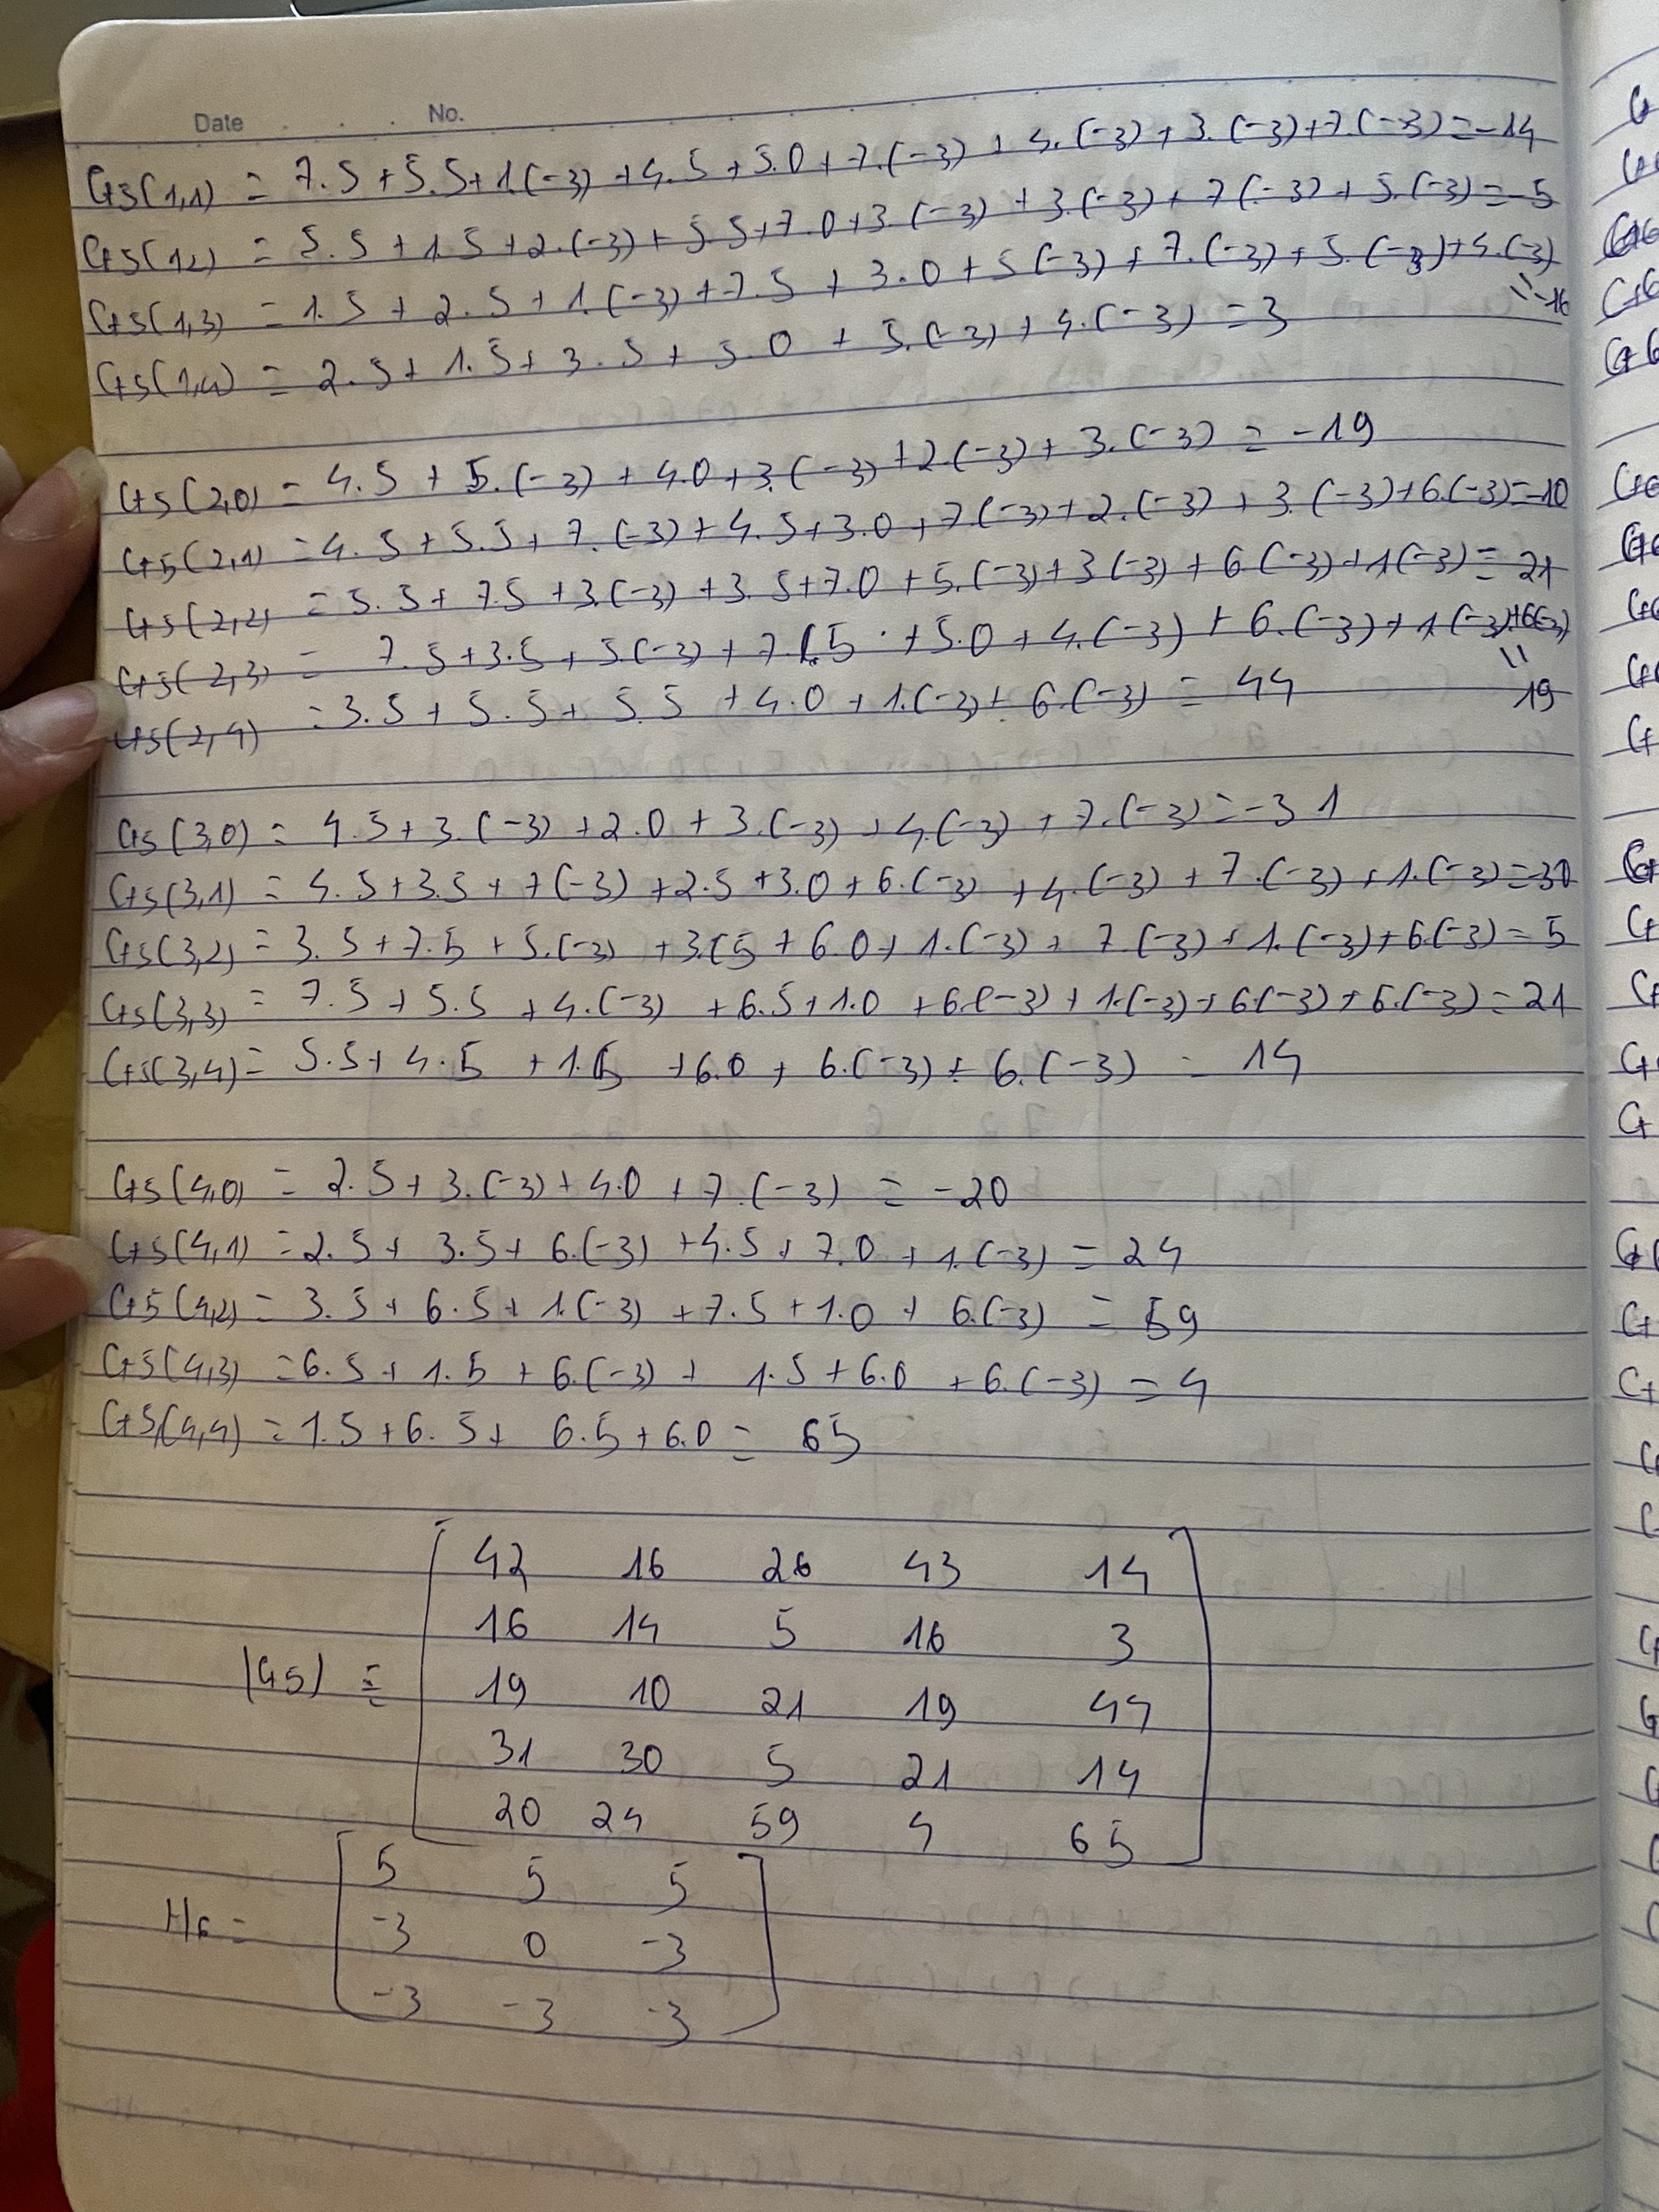 Date No.
G5(1,1) = 7.5 + 5.5 + 1.(-3) + 4.5 + 5.0 + 7.(-3) + 4.(-3) + 3.(-3) + 7.(-3) = -14
G5(1,2) = 5.5 + 1.5 + 2.(-3) + 5.5 + 7.0 + 3.(-3) + 3.(-3) + 7(-3) + 5.(-3) = -5
G5(1,3) = 1.5 + 2.5 + 1.(-3) + 7.5 + 3.0 + 5(-3) + 7.(-3) + 5.(-3) + 4.(-3)
= -16
G5(1,4) = 2.5 + 1.5 + 3.5 + 5.0 + 5.(-3) + 4.(-3) = 3
G5(2,0) = 4.5 + 5.(-3) + 4.0 + 3.(-3) + 2.(-3) + 3.(-3) = -19
G5(2,1) = 4.5 + 5.5 + 7.(-3) + 4.5 + 3.0 + 7.(-3) + 2.(-3) + 3.(-3) + 6.(-3) = -10
G5(2,2) = 5.5 + 7.5 + 3.(-3) + 3.5 + 7.0 + 5.(-3) + 3(-3) + 6(-3) + 1(-3) = 21
G5(2,3) = 7.5 + 3.5 + 5(-3) + 7.5 + 5.0 + 4.(-3) + 6.(-3) + 1.(-3) + 6(-3)
= 19
G5(2,4) = 3.5 + 5.5 + 5.5 + 4.0 + 1.(-3) + 6.(-3) = 44
G5(3,0) = 4.5 + 3.(-3) + 2.0 + 3.(-3) + 4.(-3) + 7.(-3) = -31
G5(3,1) = 4.5 + 3.5 + 7(-3) + 2.5 + 3.0 + 6.(-3) + 4.(-3) + 7.(-3) + 1.(-3) = -30
G5(3,2) = 3.5 + 7.5 + 5.(-3) + 3.5 + 6.0 + 1.(-3) + 7.(-3) + 1.(-3) + 6.(-3) = 5
G5(3,3) = 7.5 + 5.5 + 4.(-3) + 6.5 + 1.0 + 6.(-3) + 1.(-3) + 6(-3) + 6.(-3) = 21
G5(3,4) = 5.5 + 4.5 + 1.5 + 6.0 + 6.(-3) + 6.(-3) = 14
G5(4,0) = 2.5 + 3.(-3) + 4.0 + 7.(-3) = -20
G5(4,1) = 2.5 + 3.5 + 6.(-3) + 4.5 + 7.0 + 1.(-3) = 24
G5(4,2) = 3.5 + 6.5 + 1.(-3) + 7.5 + 1.0 + 6.(-3) = 59
G5(4,3) = 6.5 + 1.5 + 6.(-3) + 1.5 + 6.0 + 6.(-3) = 4
G5(4,4) = 1.5 + 6.5 + 6.5 + 6.0 = 65
42 16 26 43 14
16 14 5 16 3
|G5| = 19 10 21 19 44
31 30 5 21 14
20 24 59 4 65
5 5 5
H6 = -3 0 -3
-3 -3 -3